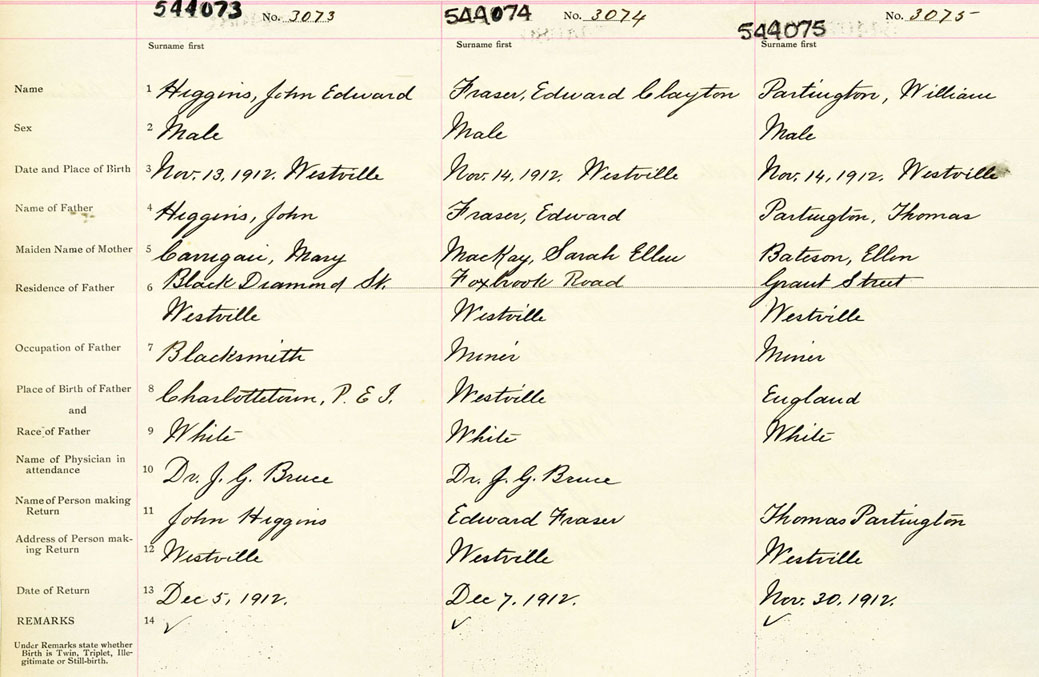 544073 No. 3073 544074 No. 3074 544075 No. 3075
Surname first Surname first Surname first
Name 1 Higgins, John Edward Fraser, Edward Clayton Partington, William
Sex 2 Male Male Male
Date and Place of Birth 3 Nov. 13, 1912. Westville Nov. 14, 1912. Westville Nov. 14, 1912. Westville
Name of Father 4 Higgins, John Fraser, Edward Partington, Thomas
Maiden Name of Mother 5 Carrigan, Mary MacKay, Sarah Ellen Bateson, Ellen
Residence of Father 6 Black Diamond St. Foxbrook Road Grant Street
Westville Westville Westville
Occupation of Father 7 Blacksmith Miner Miner
Place of Birth of Father 8 Charlottetown, P. E. I. Westville England
and
Race of Father 9 White White White
Name of Physician in
attendance 10 Dr. J. G. Bruce Dr. J. G. Bruce
Name of Person making
Return 11 John Higgins Edward Fraser Thomas Partington
Address of Person mak-
ing Return 12 Westville Westville Westville
Date of Return 13 Dec 5, 1912. Dec 7, 1912. Nov. 30, 1912.
REMARKS 14 ✓ ✓ ✓
Under Remarks state whether
Birth is Twin, Triplet, Ille-
gitimate or Still-birth.